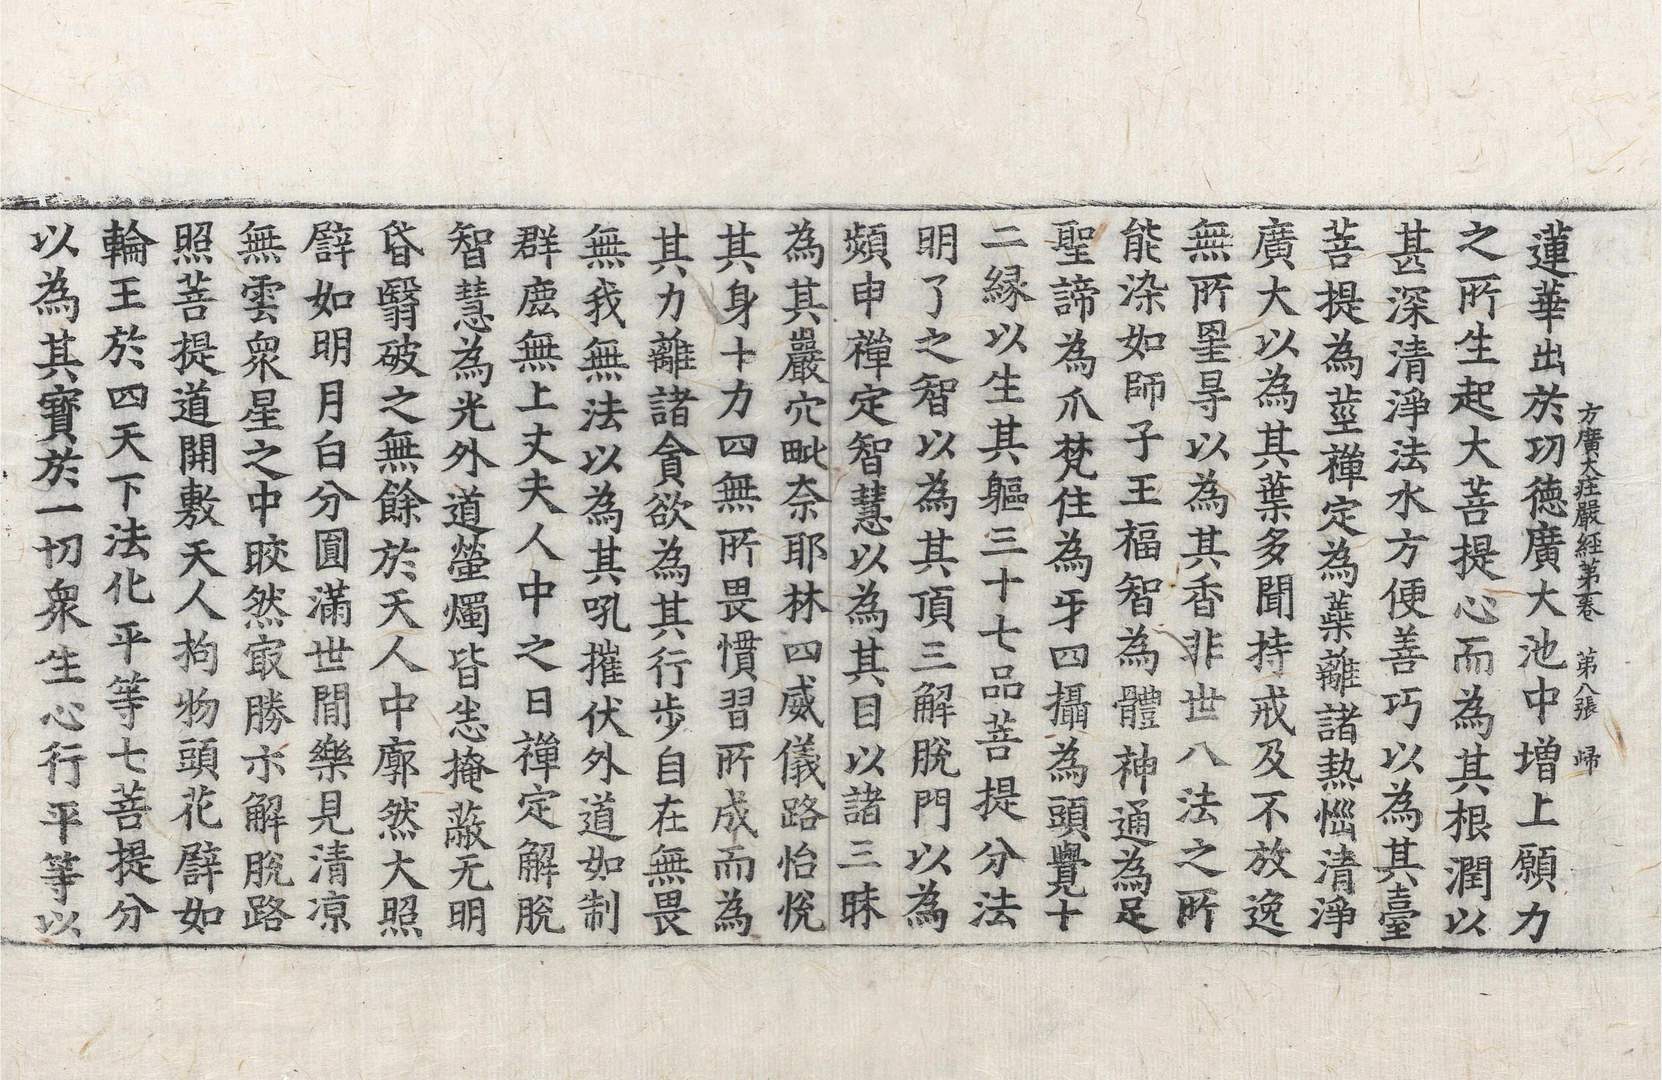 方廣大莊嚴經第一卷　第八張　歸
蓮華出於功德廣大池中增上願力
之所生起大菩提心而為其根潤以
甚深清淨法水方便善巧以為其臺
菩提為莖禪定為蘂離諸熱惱清淨
廣大以為其葉多聞持戒及不放逸
無所罣㝵以為其香非世八法之所
能染如師子王福智為體神通為足
聖諦為爪梵住為牙四攝為頭覺十
二緣以生其軀三十七品菩提分法
明了之智以為其頂三解脫門以為
頻申禪定智慧以為其目以諸三昧
為其巖穴毗奈耶林四威儀路怡悅
其身十力四無所畏慣習所成而為
其力離諸貪欲為其行步自在無畏
無我無法以為其吼摧伏外道如制
群鹿無上丈夫人中之日禪定解脫
智慧為光外道螢燭皆悉掩蔽无明
昏翳破之無餘於天人中廓然大照
譬如明月白分圓滿世間樂見清凉
無雲衆星之中皎然㝡勝示解脫路
照菩提道開敷天人拘物頭花譬如
輪王於四天下法化平等七菩提分
以為其寶於一切衆生心行平等以